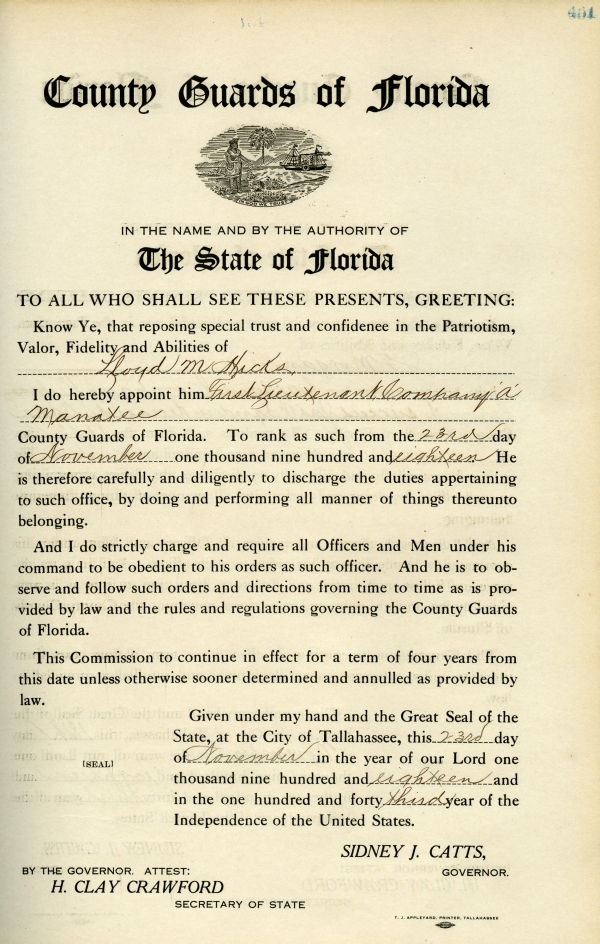 461
County Guards of Florida
IN GOD WE TRUST
IN THE NAME AND BY THE AUTHORITY OF
The State of Florida
TO ALL WHO SHALL SEE THESE PRESENTS, GREETING:
Know Ye, that reposing special trust and confidenee in the Patriotism,
Valor, Fidelity and Abilities of
Lloyd M. Hicks
I do hereby appoint him First Lieutenant Company "A"
Manatee
County Guards of Florida. To rank as such from the 23rd day
of November one thousand nine hundred and eighteen He
is therefore carefully and diligently to discharge the duties appertaining
to such office, by doing and performing all manner of things thereunto
belonging.
And I do strictly charge and require all Officers and Men under his
command to be obedient to his orders as such officer. And he is to ob-
serve and follow such orders and directions from time to time as is pro-
vided by law and the rules and regulations governing the County Guards
of Florida.
This Commission to continue in effect for a term of four years from
this date unless otherwise sooner determined and annulled as provided by
law.
Given under my hand and the Great Seal of the
State, at the City of Tallahassee, this 23rd day
of November in the year of our Lord one
[SEAL]
thousand nine hundred and eighteen and
in the one hundred and forty third year of the
Independence of the United States.
SIDNEY J. CATTS,
GOVERNOR.
BY THE GOVERNOR. ATTEST:
H. CLAY CRAWFORD
SECRETARY OF STATE
T. J. APPLEYARD, PRINTER, TALLAHASSEE